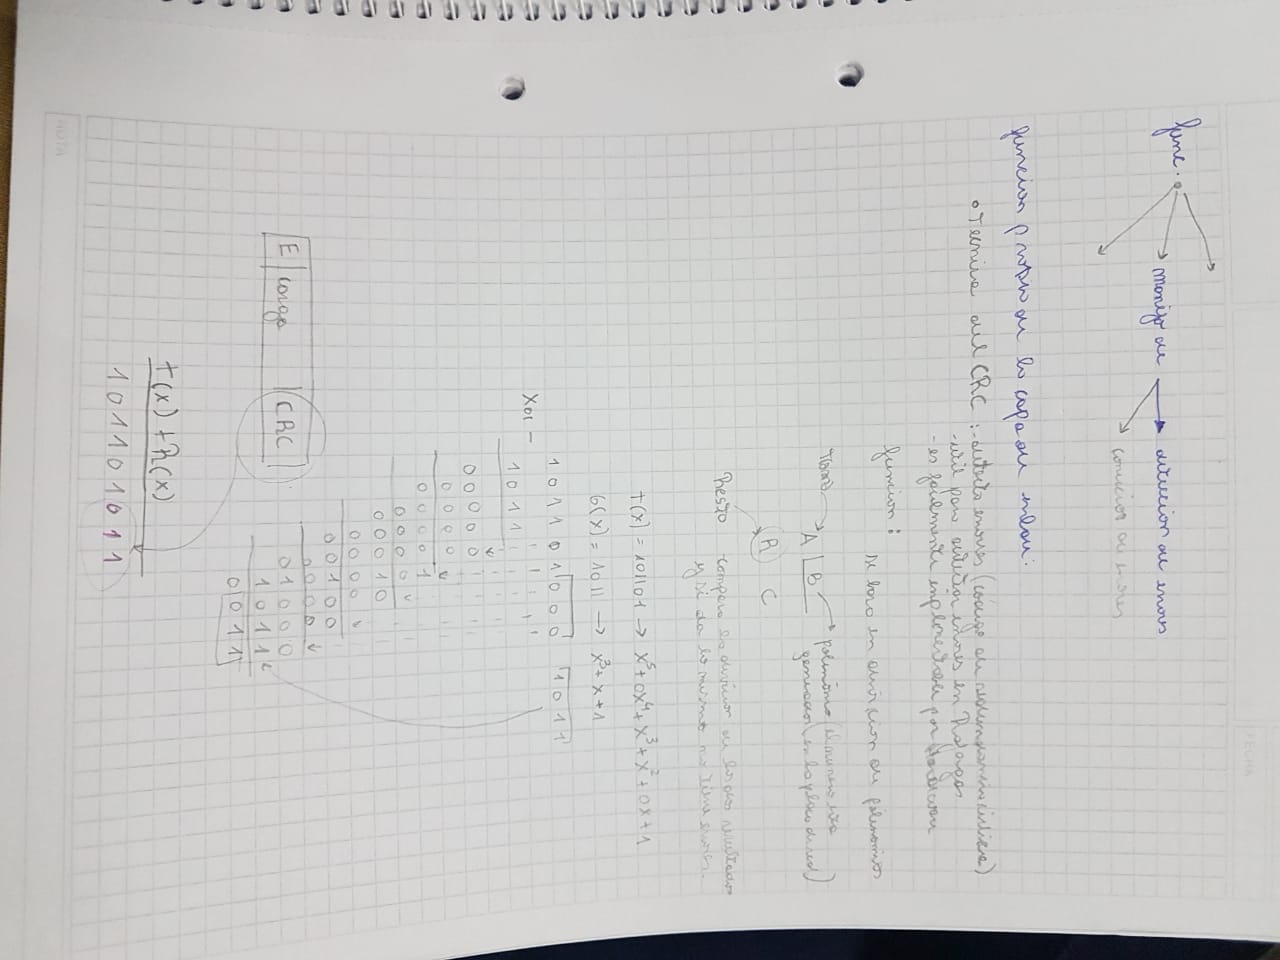 FECHA
func.
manejo de
detección de errores
corrección de errores
función p de la capa de enlace:
Tecnica del CRC : - detecta errores (código de redundancia cíclica)
- util para detectar errores en Rafagas
- es facilmente implementable por Hardware
funcion :
se basa en división de polinomios
A B polinomio (el numero
generador en la placa de red)
R C
Resto compara la division de los dos resultados
y si da lo mismo no tiene errores.
T(x) = 101101 → x⁵+0x⁴+x³+x²+0x+1
G(x) = 1011 → x³+x+1
101101000 1011
Xor -
1011
00000
0000
00001
0000
00010
0000
00100
0000
01000
1011
0011
E carga CRC
T(x) + R(x)
101101011
NOTA